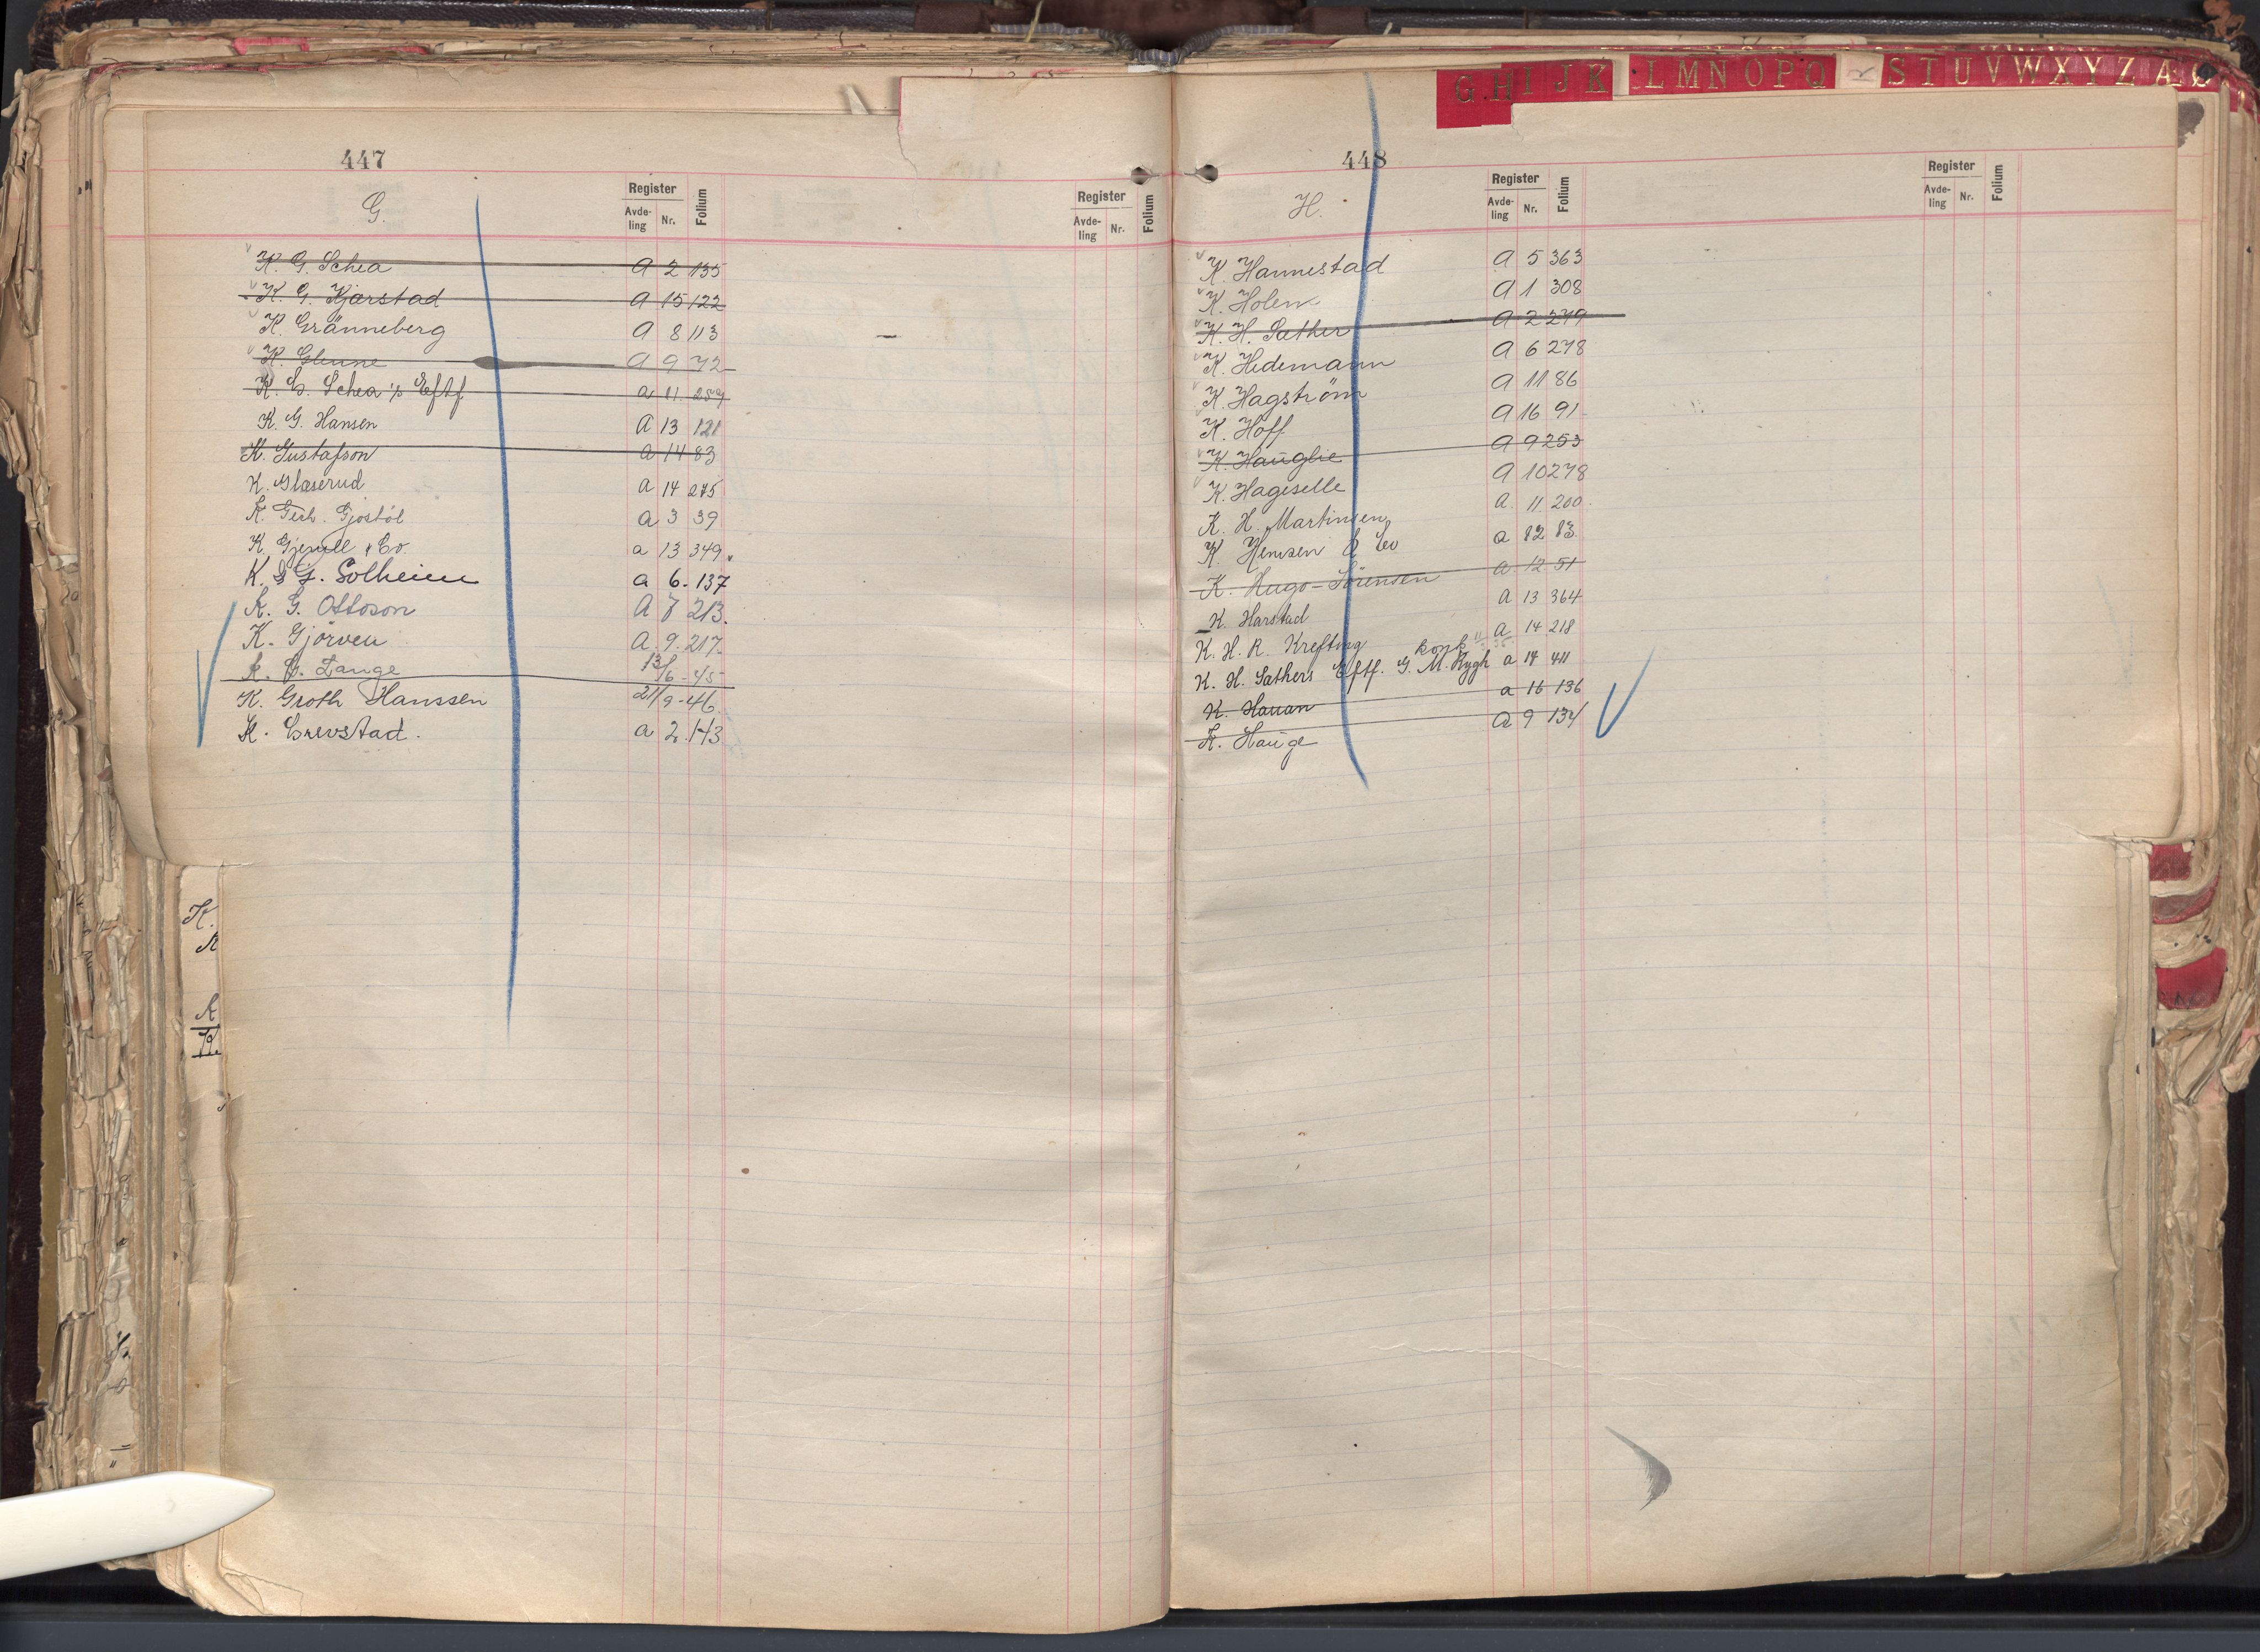 G H I J K L M N O P Q S T U V W X Y Z Æ Ø
447
G.
Register
Avde-
ling
Nr.
Folium
Register
Avde-
ling
Nr.
Folium
K. G. Schea A 2 135
K. G. Kjarstad A 15 122
K. Gränneberg A 8 113
K. Glenne A 9 72
K. G. Schea's Eftf a 11 259
K. G. Hansen A 13 121
K. Gustafson a 14 83
K. Glaserud a 14 275
K. Gerh. Gjostöl a 3 39
K. & Co. a 13 349
K. G. Solheim a 6. 137
K. G. Ottoson A 7 213.
K. Gjörven A. 9. 217.
K. G. Lange 13/6 - 45
K. Groth Hanssen 21/9 - 46.
K. Grevstad. a 2. 143
K.
K
K
K.
448
H.
Register
Avde-
ling
Nr.
Folium
Register
Avde-
ling
Nr.
Folium
K. Hannestad A 5 363
K. Holen A 1 308
K. H. Sæther A 2 279
K. Hedemann A 6 278
K. Hagström A 11 86
K. Hoff A 16 91
K. Hauglie A 9 253
K. Hageselle A 10 278
K. H. Martinsen A. 11. 200.
K. Hemsen & Co a 12 13
K. Hugo-Sörensen a. 12 51
K. Harstad A 13 364
K. H. R. Krefting A 14 218
konk
K. H. Sathers Eftf. G. M. Rygh a 14 411
K. Hauan a 16 136
K. Hauge A 9 134